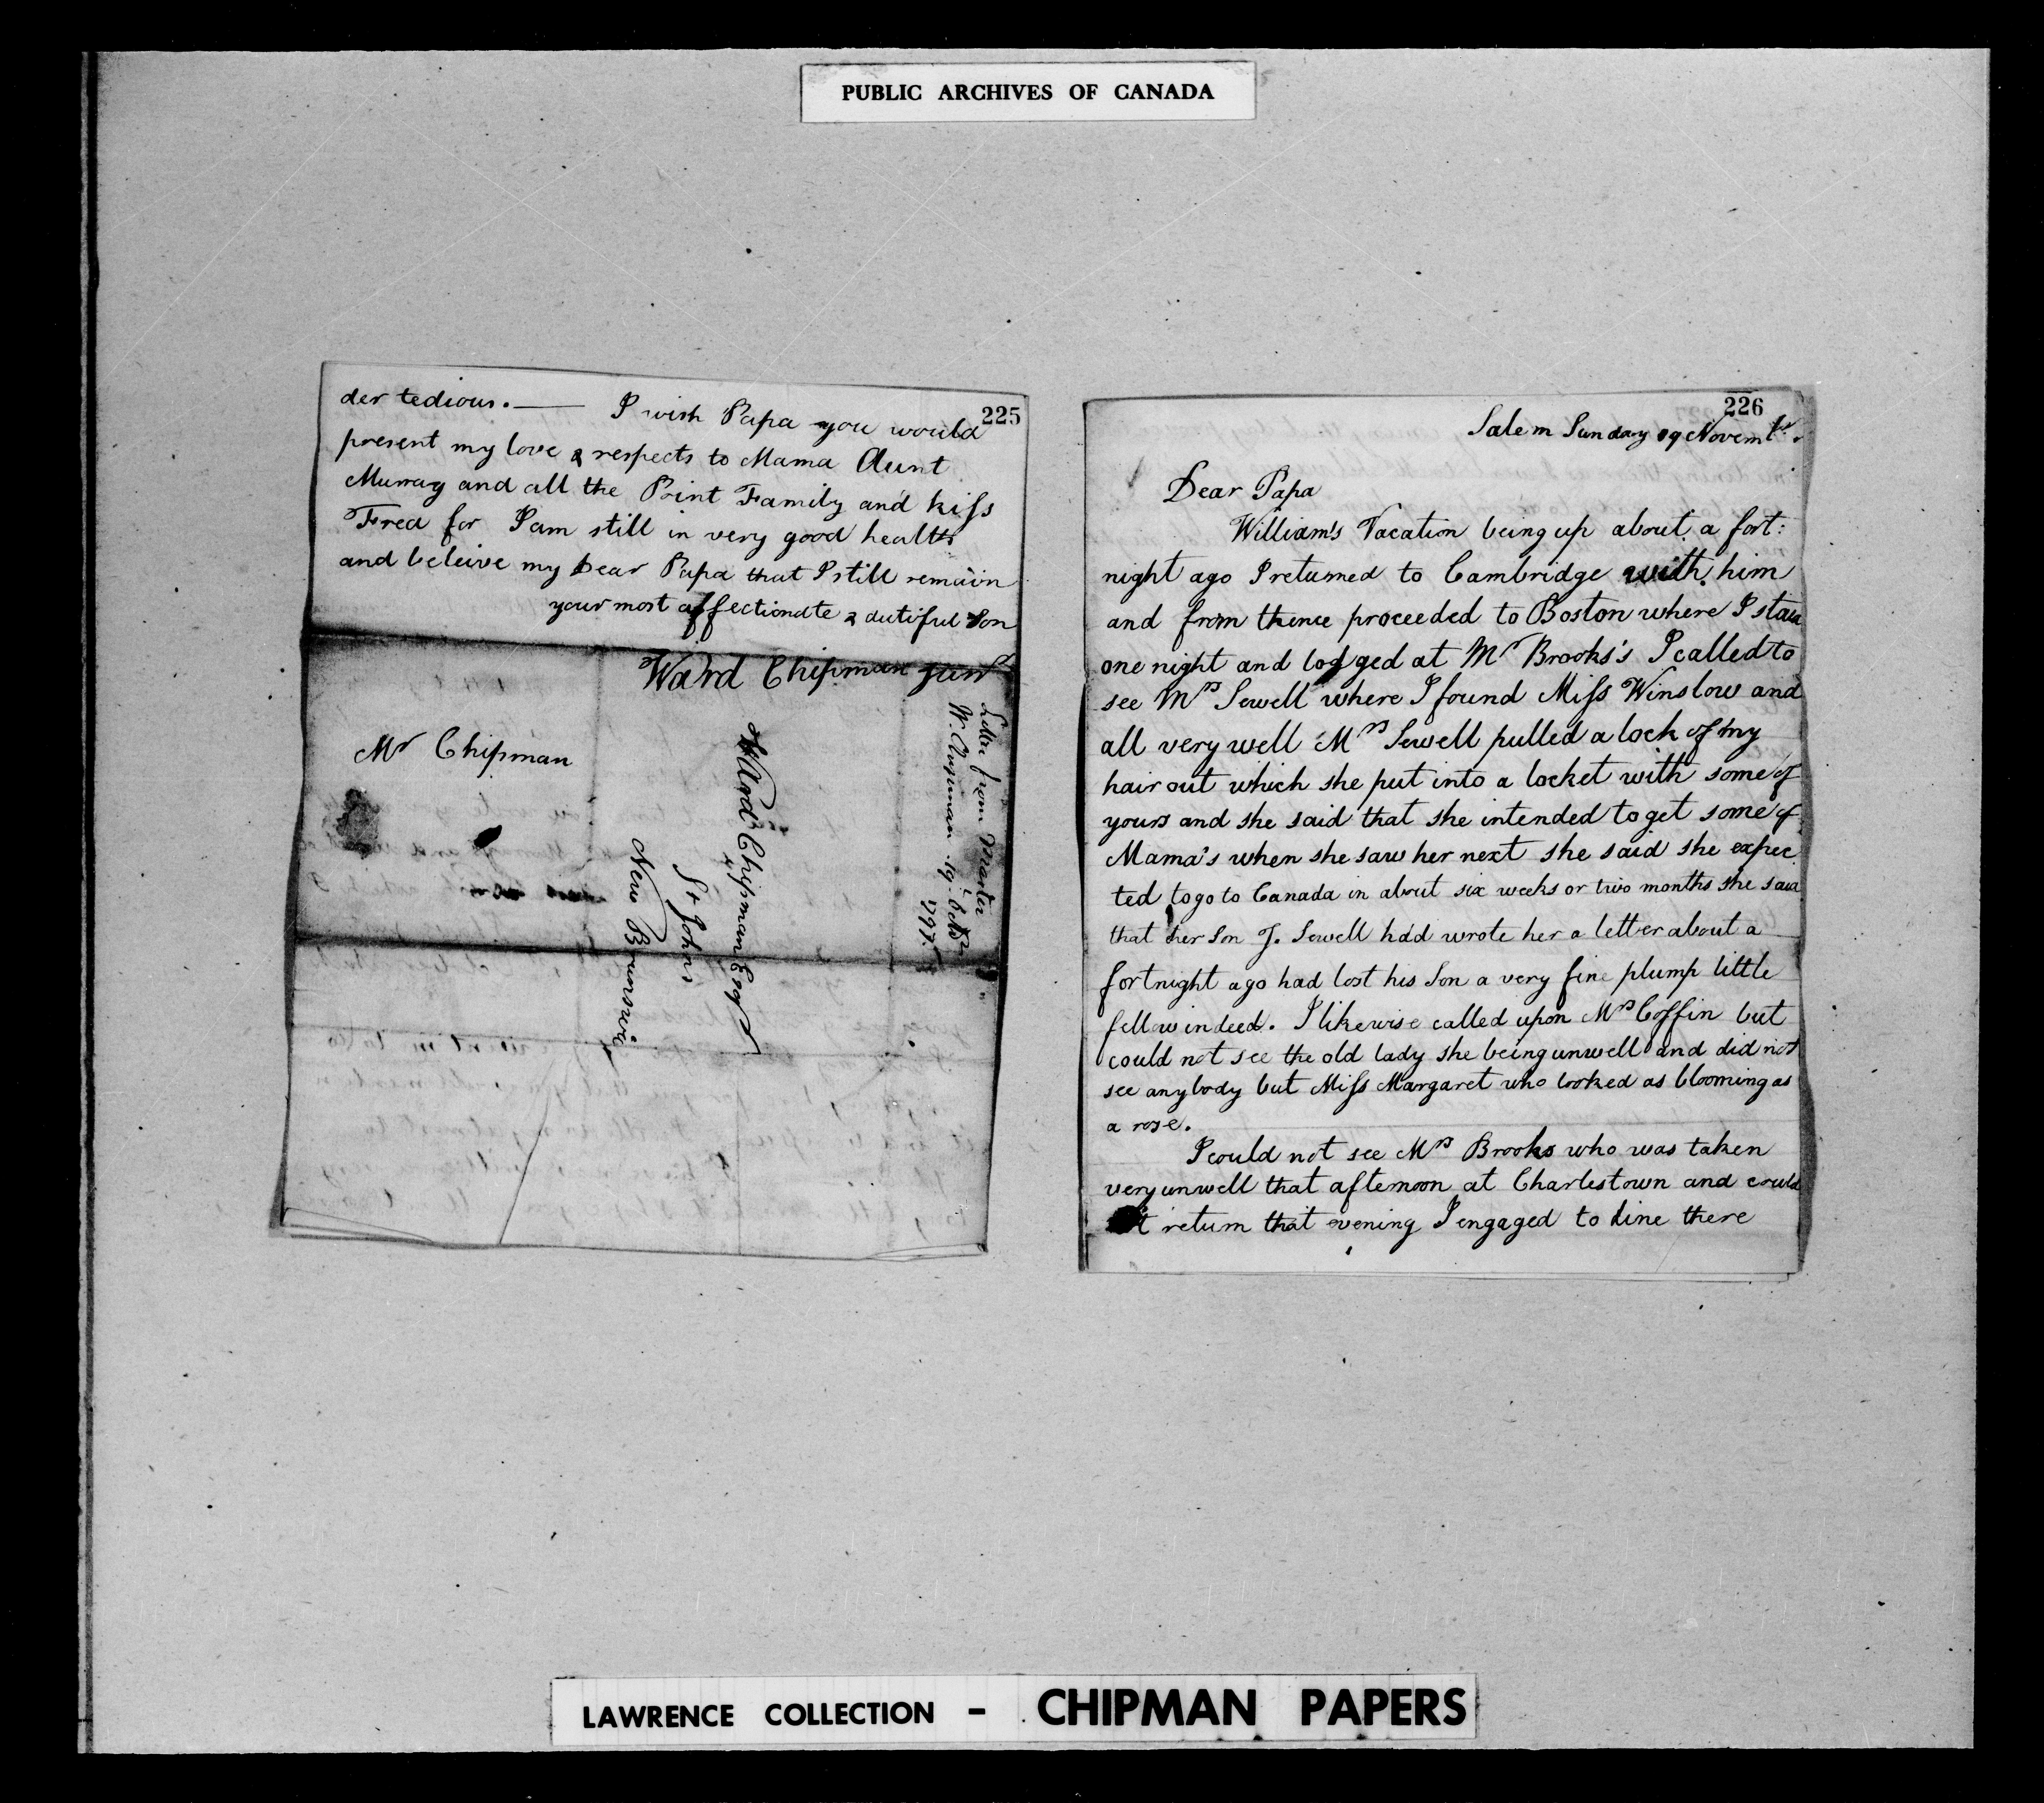 PUBLIC ARCHIVES OF CANADA
225
der tedious. — I wish Papa you would
present my love & respects to Mama Aunt
Murray and all the Point Family and kiss
Fred for I am still in very good health
and beleive my Dear Papa that I still remain
your most affectionate & dutiful Son
Ward Chipman Junr
Mr Chipman
Ward Chipman Esqr
St Johns
New Brunswic
Letter from Master
W. Chipman 19. Octr
1797.
226
Salem Sunday 19 Novembr.
Dear Papa
William's Vacation being up about a fort:
night ago I returned to Cambridge with him
and from thence proceeded to Boston where I staid
one night and lodged at Mr Brooks's I called to
see Mrs Sewell where I found Miss Winslow and
all very well Mrs Sewell pulled a lock of my
hair out which she put into a locket with some of
yours and she said that she intended to get some of
Mama's when she saw her next she said she expec
ted to go to Canada in about six weeks or two months she said
that her Son J. Sewell had wrote her a letter about a
fortnight ago had lost his Son a very fine plump little
fellow indeed. I likewise called upon Mrs Coffin but
could not see the old lady she being unwell and did not
see anybody but Miss Margaret who looked as blooming as
a rose.
I could not see Mrs Brooks who was taken
very unwell that afternoon at Charlestown and could
return that evening I engaged to dine there
LAWRENCE COLLECTION - CHIPMAN PAPERS